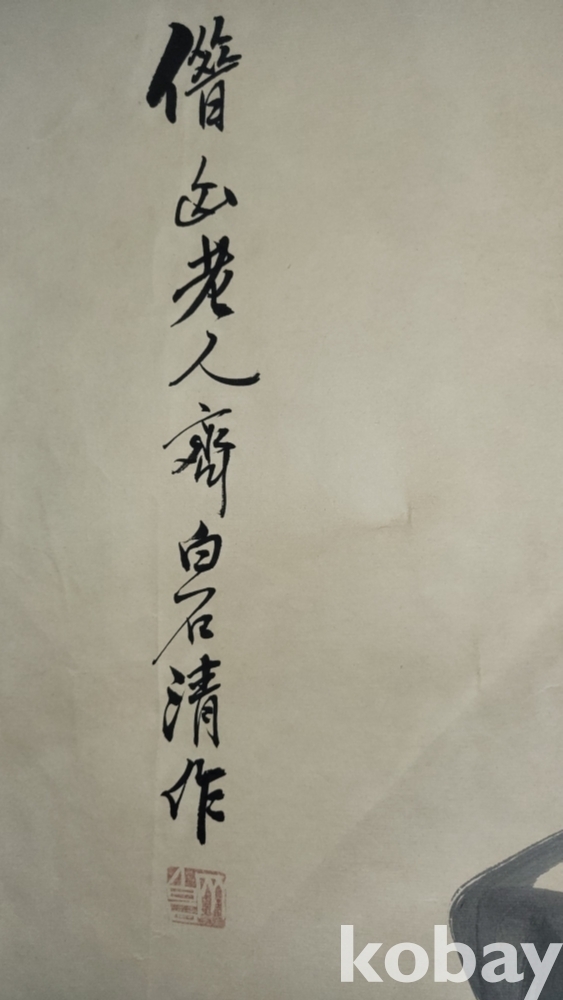 借山老人齊白石清作
kobay